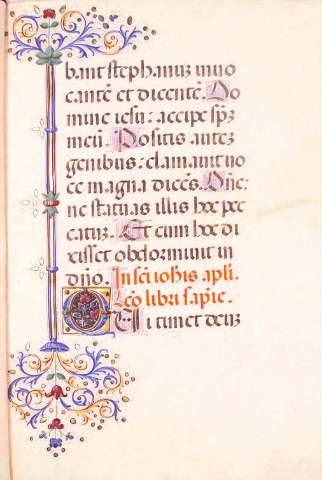 bant stephanum inuo
cantē et dicentē. Do
mine iesu: accipe spm̄
meū. Positis autez
genibus: clamauit uo
ce magna dicēs. Dnē:
ne statuas illis hoc pec
catuz. Et cum hoc di
xisset obdormiuit in
dnō. In scī iohīs apli.
Lc̄o libri sapīe.
Qui timet deuz